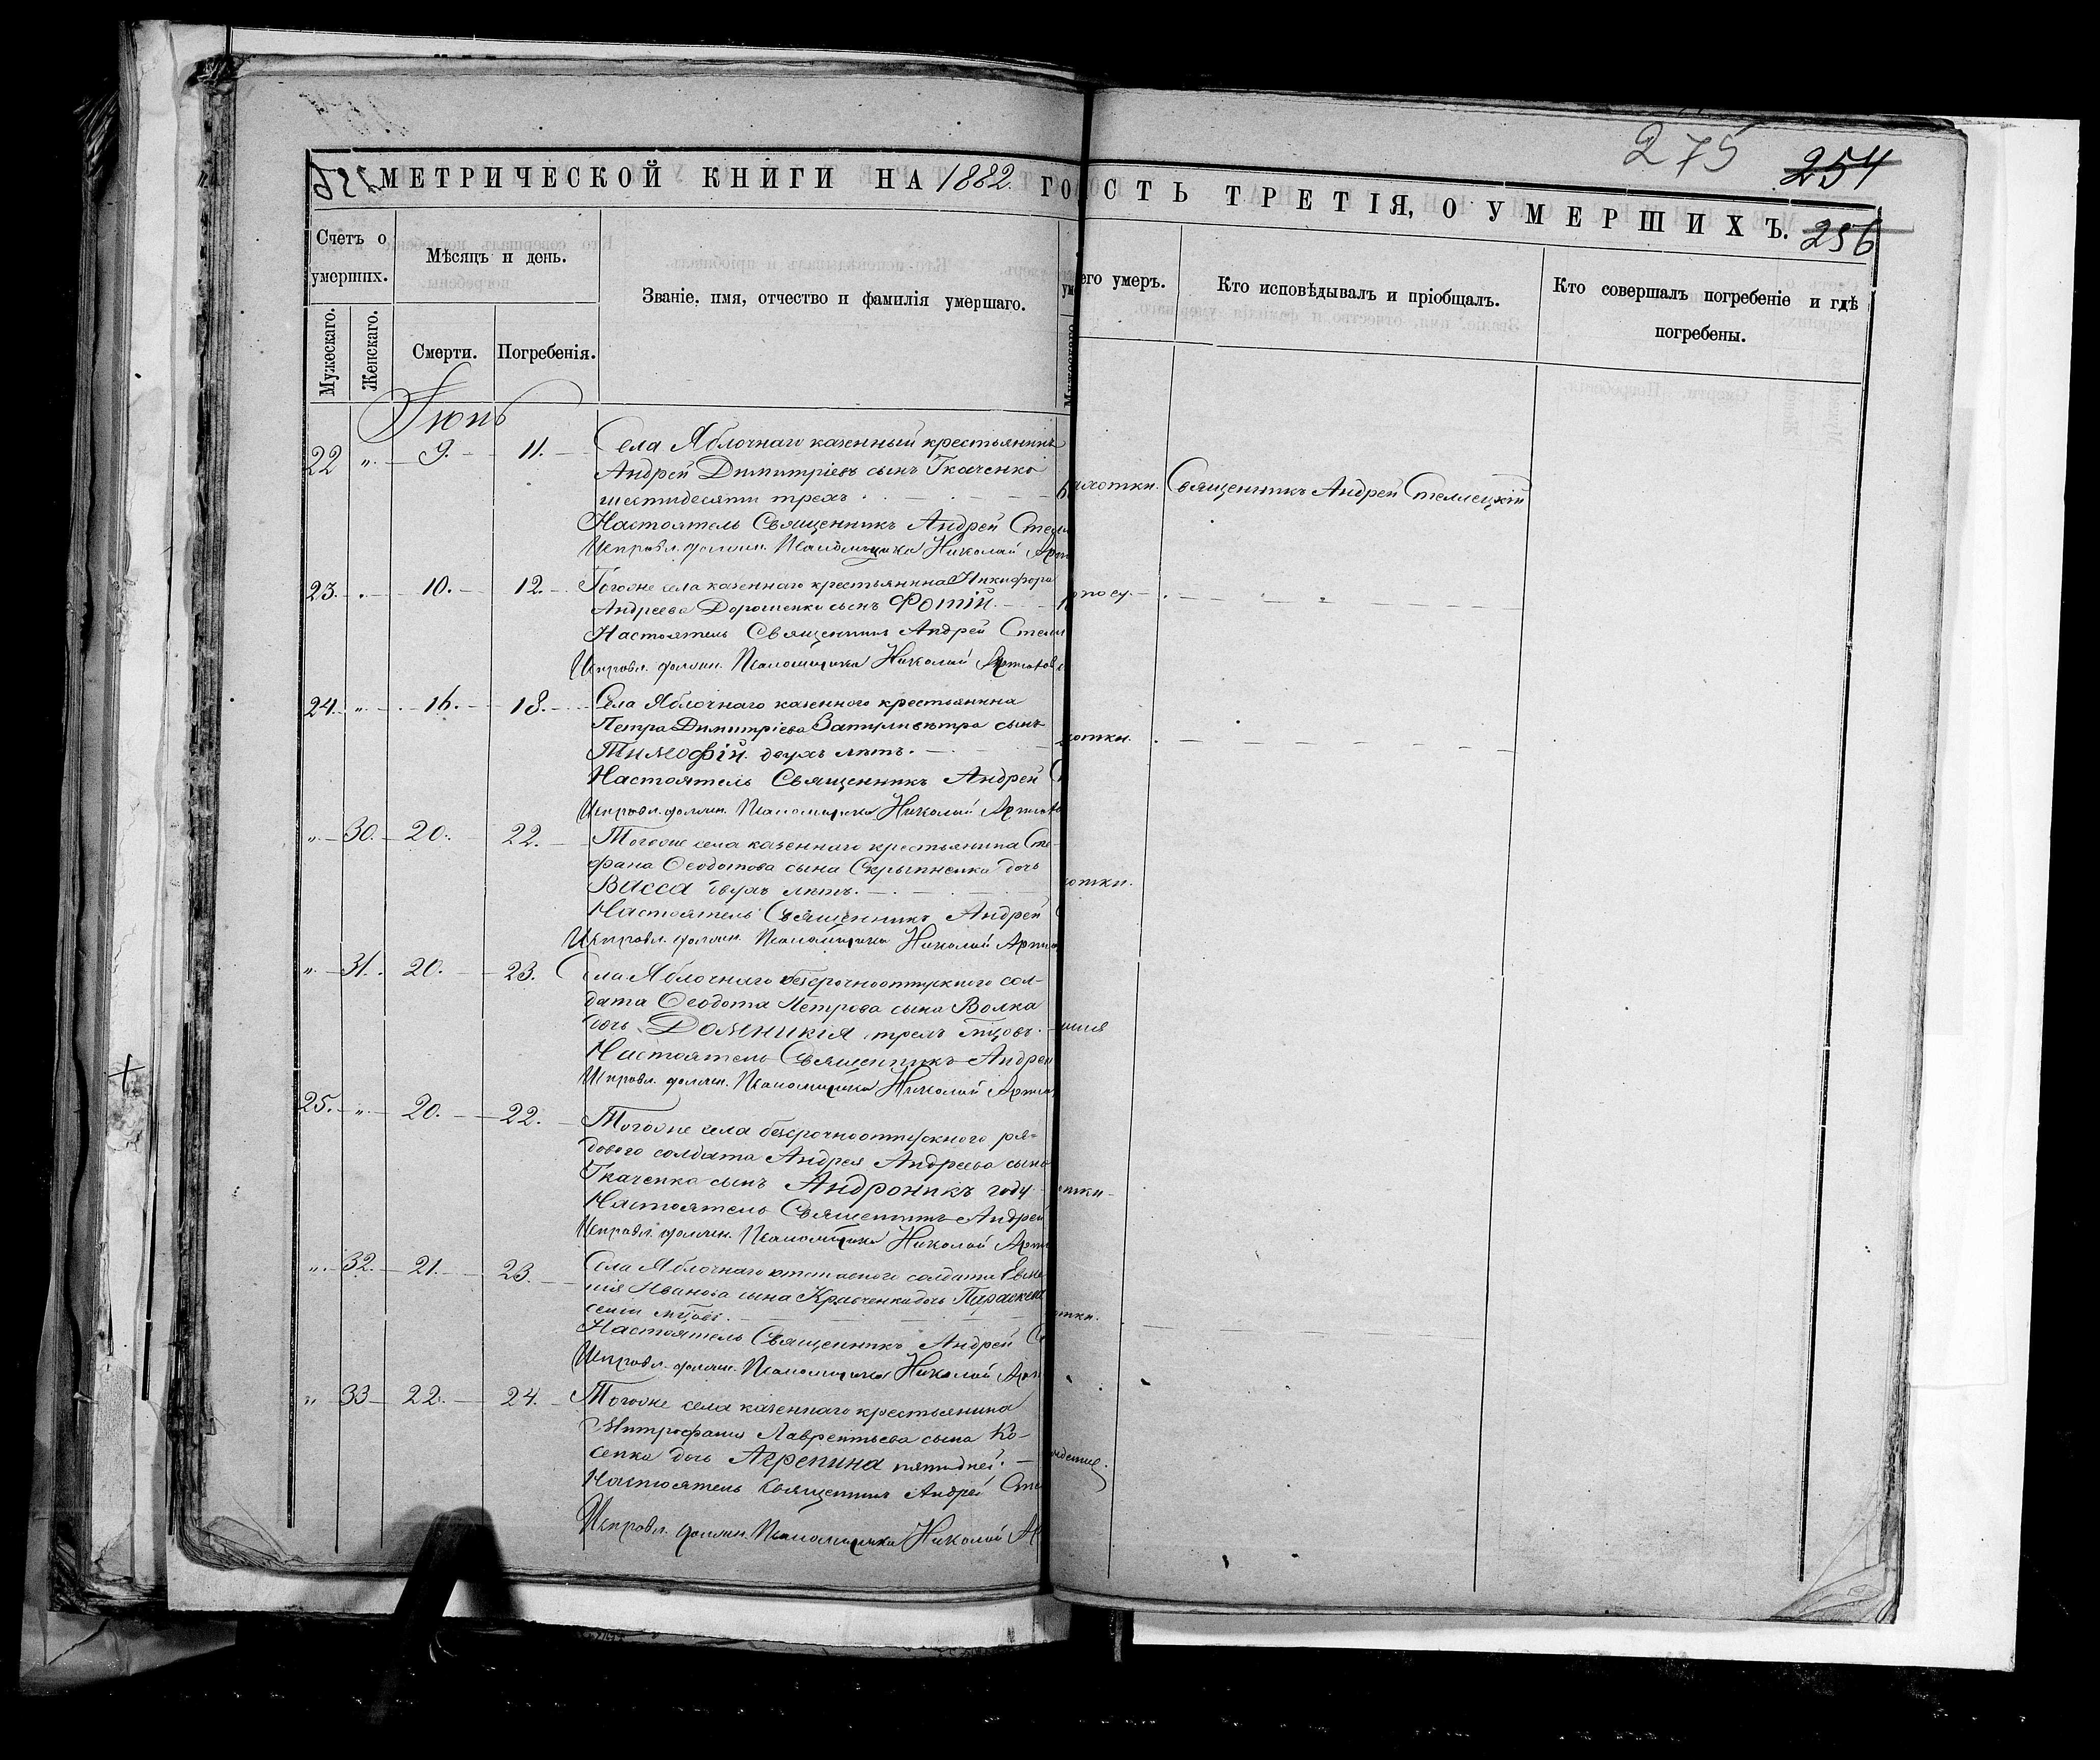 275
254
256
МЕТРИЧЕСКОЙ КНИГИ НА 1882. ГО
СТЬ ТРЕТІЯ, О УМЕРШИХЪ.
Счетъ о умерших.
Мѣсяцъ и день.
Званіе, имя, отчество и фамилія умершаго.
его умеръ.
Кто исповѣдывалъ и пріобщалъ.
Кто совершалъ погребеніе и гдѣ
погребены.
Мужескаго.
Женскаго.
Смерти.
Погребенія.
Іюнь
22 „ 9. 11. Села Яблочнаго казенный крестьянинъ
Андрей Димитріевъ сынъ Ткаченко
шестидесяти трехъ. 6 Священникъ Андрей Стеллецкій
Настоятель Священникъ Андрей
Исправл. должн. Псаломщика Николай
23. 10. 12. Тогоже села казеннаго крестьянина Никифора
Андреева Дорошенко сынъ Фотій.
Настоятель Священникъ Андрей
Исправл. должн. Псаломщика Николай
24. „ 16. 18. Села Яблочнаго казенного крестьянина
Петра Димитріева сынъ
Тимофій. двухъ лѣтъ.
Настоятель Священникъ Андрей
Исправл. должн. Псаломщика Николай
„ 30. 20. 22. Тогоже села казеннаго крестьянина Сте-
фана Ѳеодотова сына Скрыпненка дочь
Васса двухъ лѣтъ. отки.
Настоятель Священникъ Андрей
Исправл. должн. Псаломщика Николай
„ 31. 20. 23. Села Яблочнаго безсрочноотпускного сол-
дата Ѳеодота Петрова сына Волка
дочь Домникія трехъ
Настоятель Священникъ Андрей
Исправл. должн. Псаломщика Николай
25. „ 20. 22. Тогоже села безсрочноотпускного ря-
дового солдата Андрея Андреева сына
Ткаченка сынъ Андроникъ году
Настоятель Священникъ Андрей
Исправл. должн. Псаломщика Николай
„ 32. 21. 23. Села Яблочнаго отставного солдата
Иванова сына Кравченка дочь
семи
Настоятель Священникъ Андрей
Исправл. должн. Псаломщика Николай
„ 33 22. 24. Тогоже села казеннаго крестьянина
Митрофана Лаврентьева сына Ко-
сенка дочь Агрепина пяти дней.
Настоятель Священникъ Андрей
Исправл. должн. Псаломщика Николай